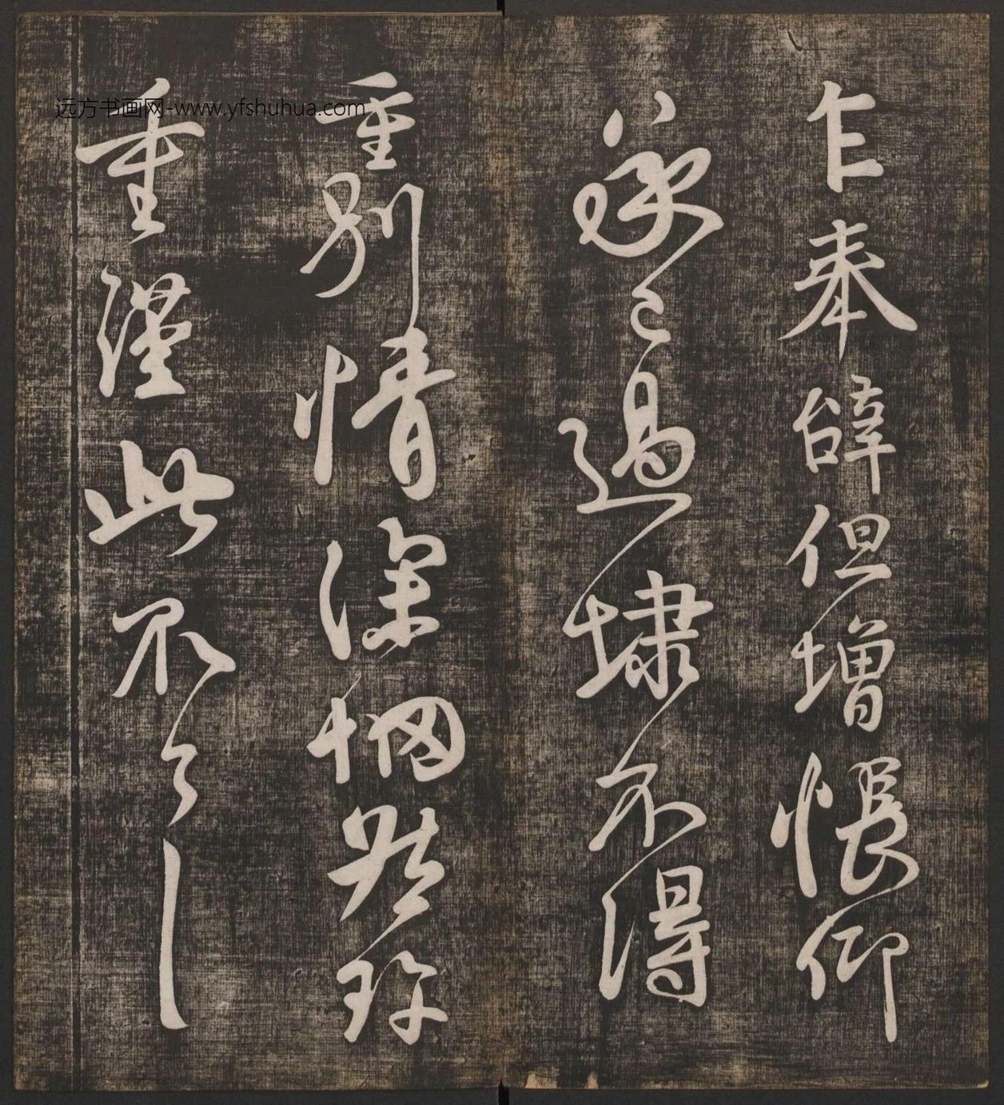 乍奉辝但增悵仰
過埭不得
重別情深惘然珍
重謹此不
远方书画网-www.yfshuhua.com